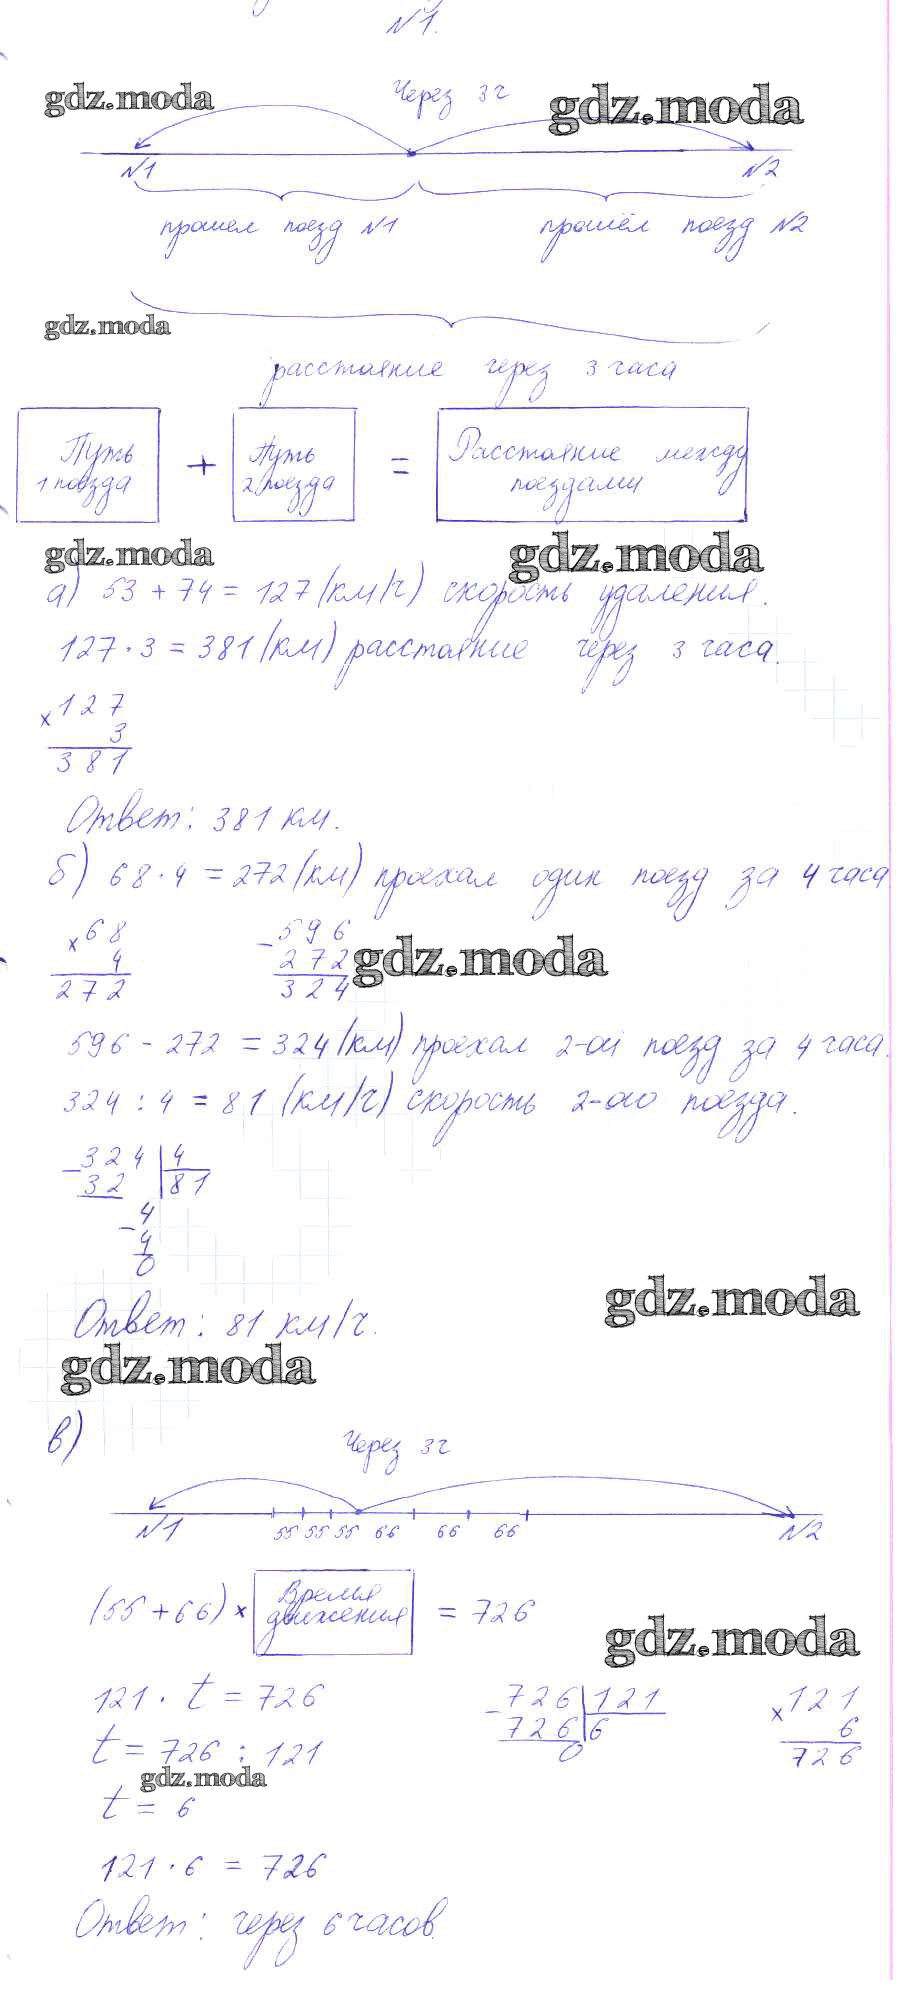 №1.
Через 3ч
gdz.moda gdz.moda
№1 №2
прошёл поезд №1 прошёл поезд №2
gdz.moda
расстояние через 3 часа
Путь 1 поезда + Путь 2 поезда = Расстояние между поездами
gdz.moda gdz.moda
а) 53 + 74 = 127 (км/ч) скорость удаления.
127 · 3 = 381 (км) расстояние через 3 часа.
× 127
3
381
Ответ: 381 км.
б) 68 · 4 = 272 (км) проехал один поезд за 4 часа
× 68 - 596
4 272 gdz.moda
272 324
596 - 272 = 324 (км) проехал 2-ой поезд за 4 часа.
324 : 4 = 81 (км/ч) скорость 2-ого поезда.
- 324 | 4
32 | 81
- 4
4
0
gdz.moda
Ответ: 81 км/ч.
gdz.moda
в)
Через 3ч
№1 55 55 55 66 66 66 №2
(55 + 66) × Время движения = 726
gdz.moda
121 · t = 726 - 726 | 121 × 121
t = 726 : 121 726 | 6 6
0 726
gdz.moda
t = 6
121 · 6 = 726
Ответ: через 6 часов.